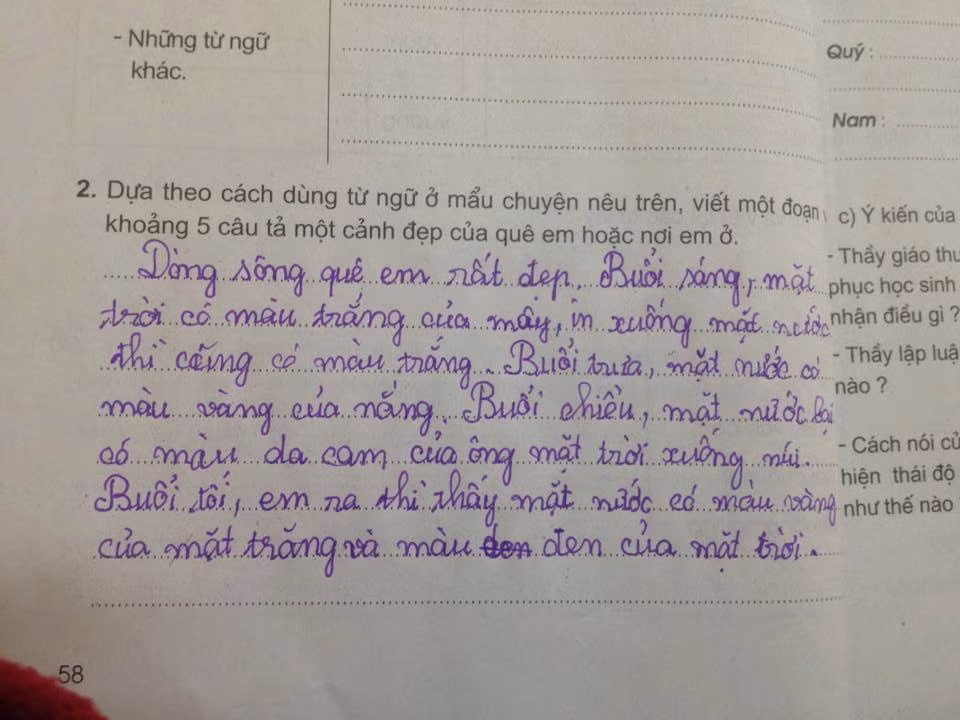 - Những từ ngữ
khác.
Quý :
Nam :
2. Dựa theo cách dùng từ ngữ ở mẩu chuyện nêu trên, viết một đoạn
khoảng 5 câu tả một cảnh đẹp của quê em hoặc nơi em ở.
Dòng sông quê em rất đẹp. Buổi sáng, mặt
trời có màu trắng của mây, in xuống mặt nước
thì cũng có màu trắng. Buổi trưa, mặt nước có
màu vàng của nắng. Buổi chiều, mặt nước lại
có màu da cam của ông mặt trời xuống núi.
Buổi tối, em ra thì thấy mặt nước có màu vàng
của mặt trăng và màu đen đen của mặt trời.
c) Ý kiến của
- Thầy giáo thu
phục học sinh
nhận điều gì ?
- Thầy lập luậ
nào ?
- Cách nói củ
hiện thái độ
như thế nào
58